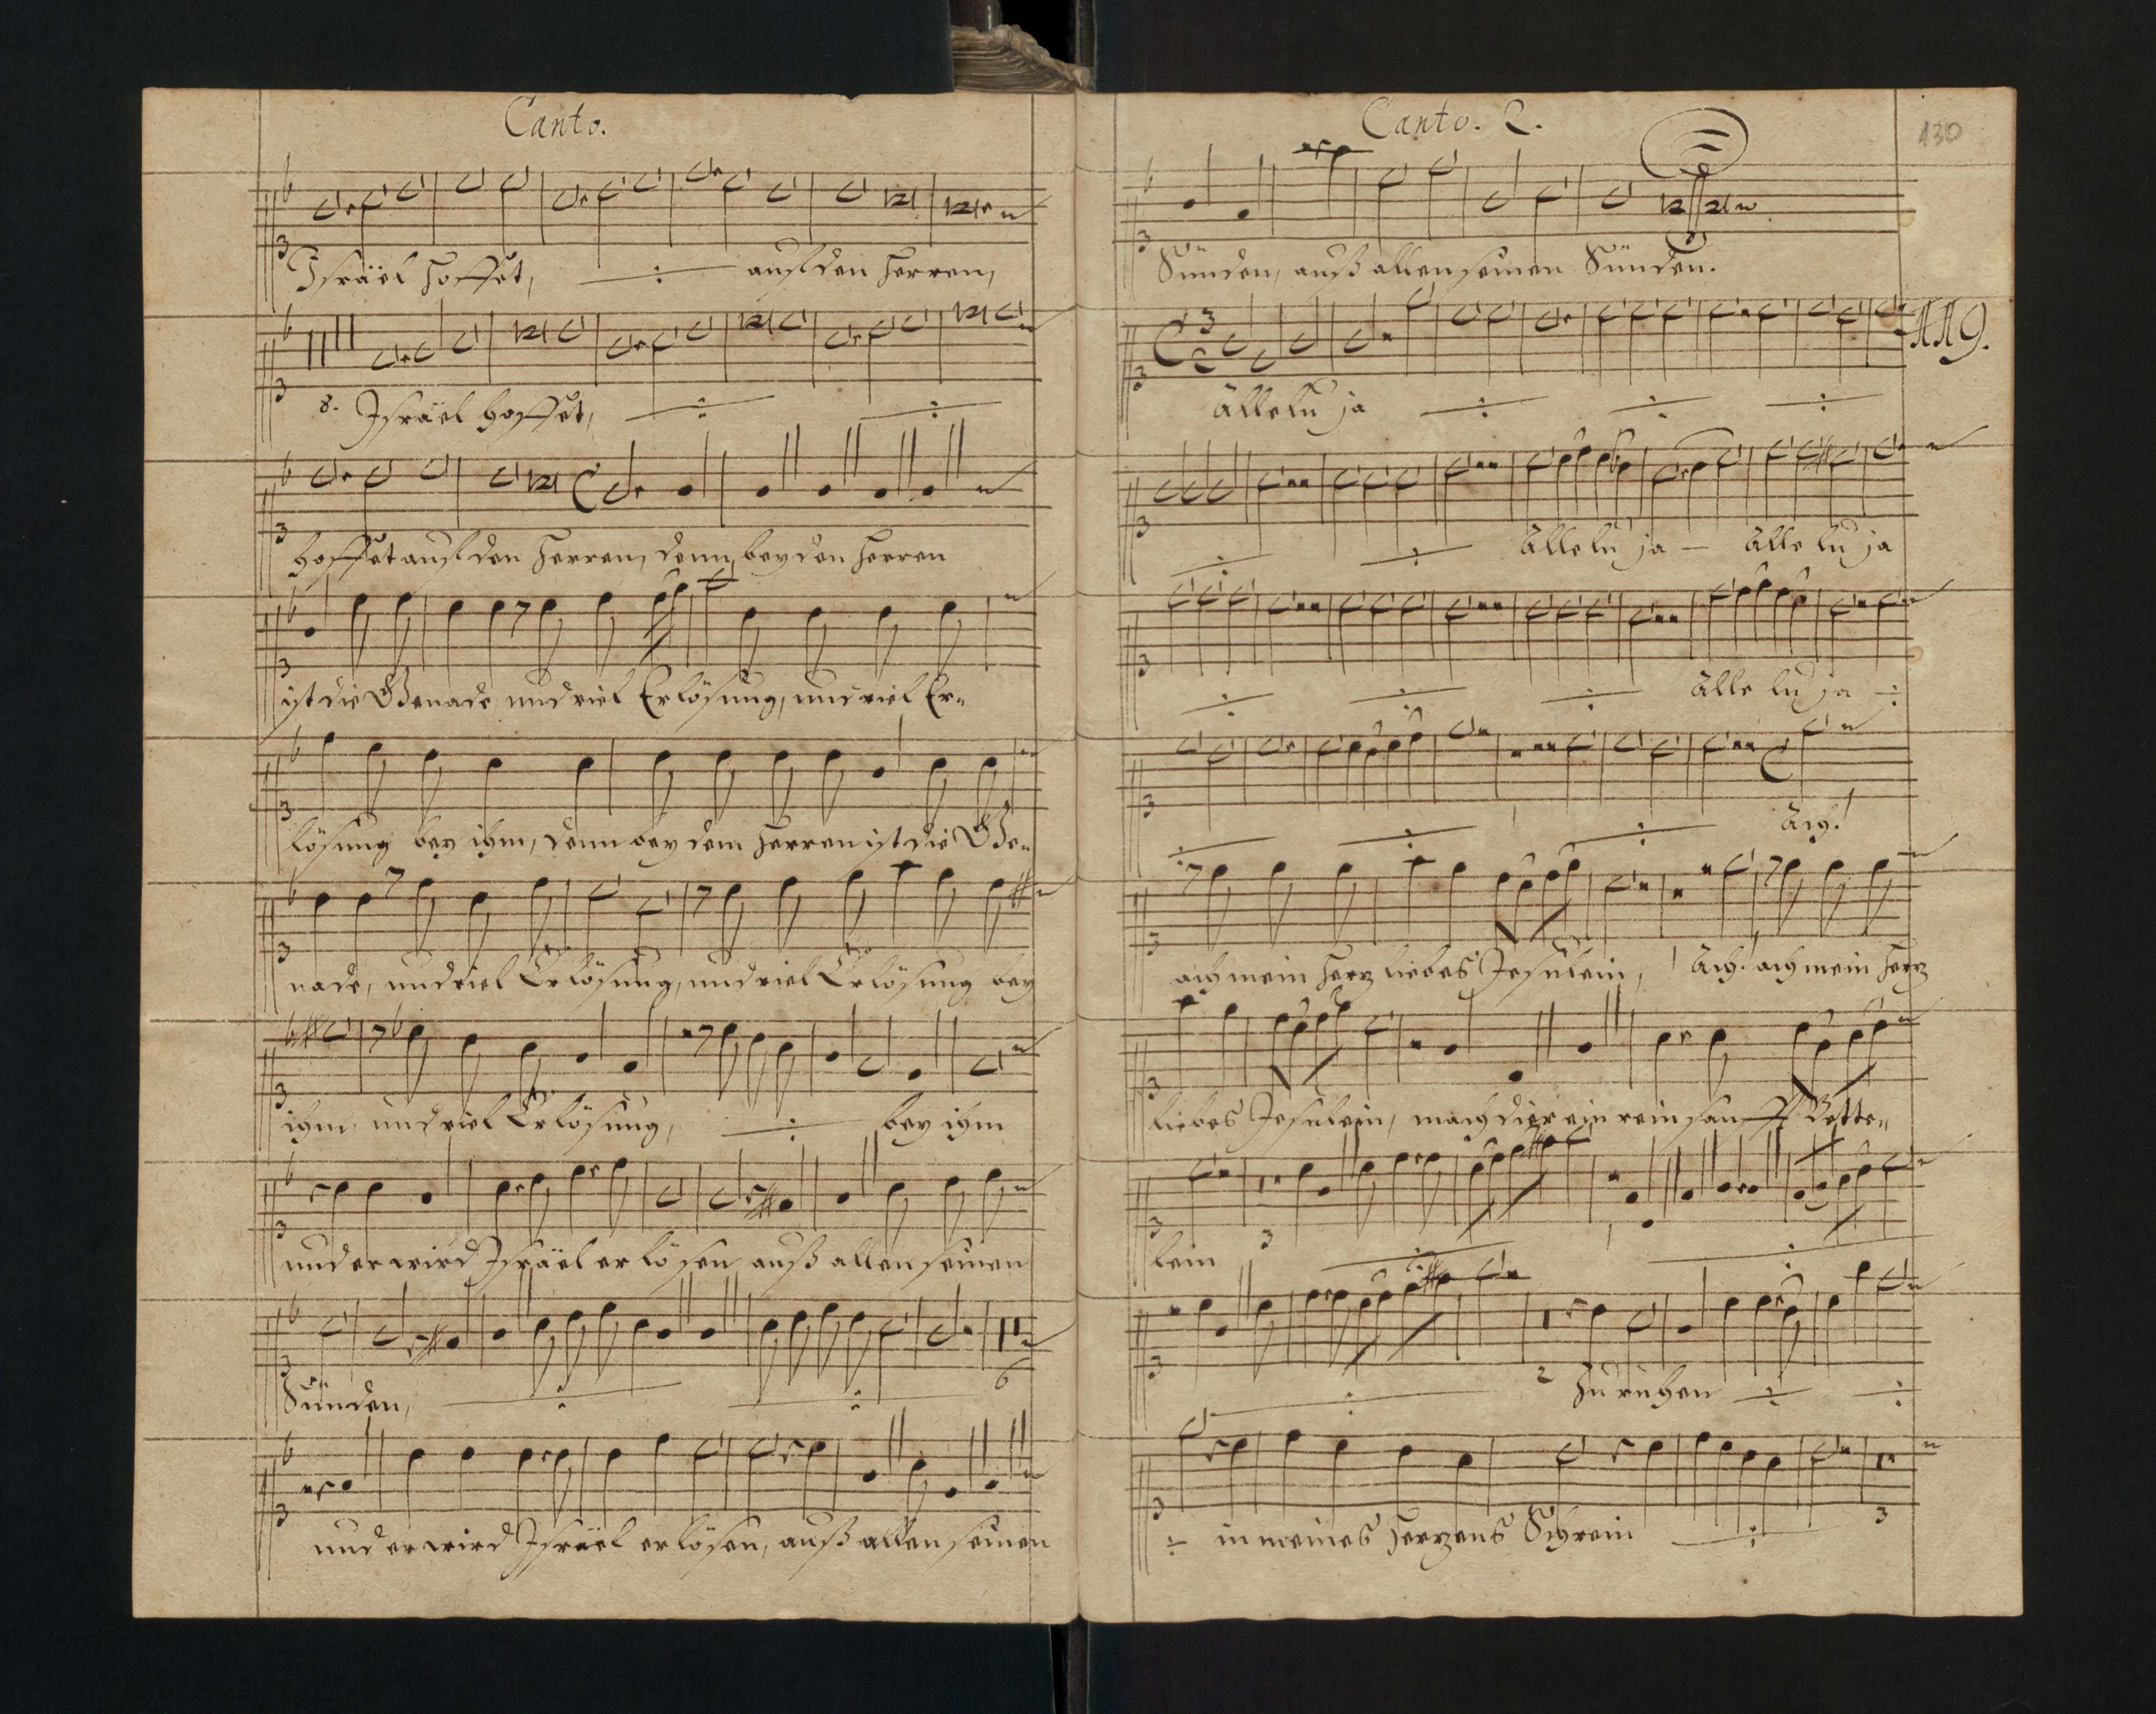 Canto.
Israël hoffet, auf den Herren,
8. Israël hoffet,
hoffet auf den Herren, denn bey den Herren
ist die Genade und viel Erlösung, und viel Er-
lösung bey ihm, denn bey dem Herren ist die Ge-
nade, und viel Erlösung, und viel Erlösung bey
ihm und viel Erlösung, bey ihm
und er wird Israël erlösen auß allen seinen
Sünden,
6
und er wird Israël erlösen, auß allen seinen
Canto. 2.
130
Sünden, auß allen seinen Sünden.
119.
Alleluja
Alleluja – Alleluja
Alleluja
Ach!
ach mein Herz liebes Jesulein, Ach! ach mein Herz
liebes Jesulein, mach dir ein rein sanfft Bette-
3
lein
2 zu ruhen
in meines Herzens Schrein 3